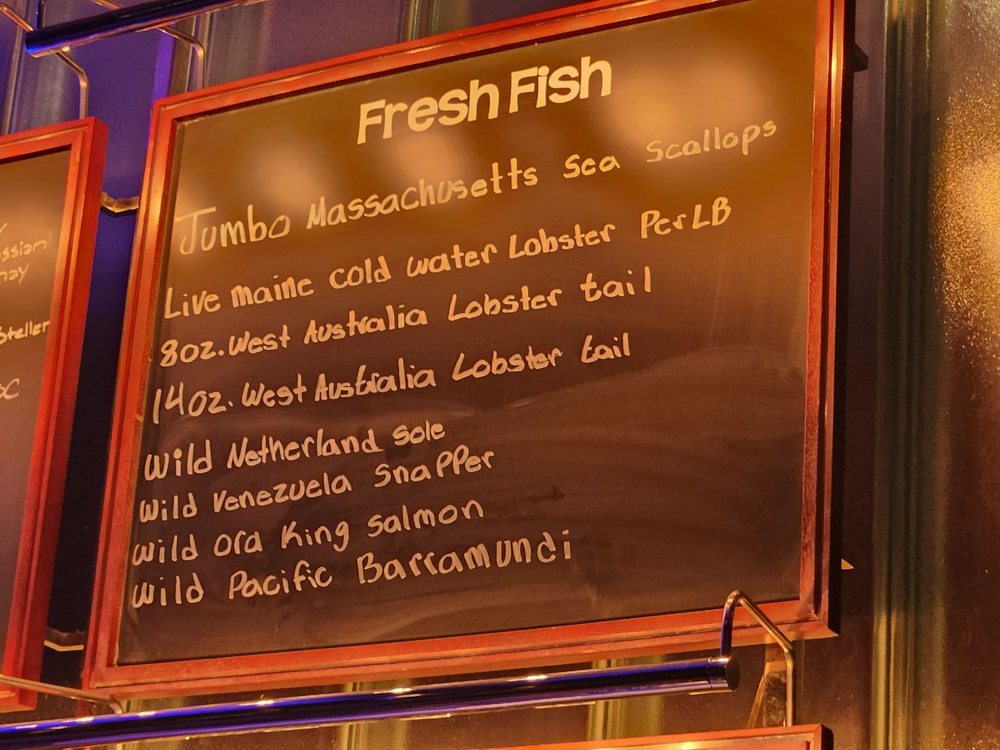 Fresh Fish
Jumbo Massachusetts Sea Scallops
Live maine cold water Lobster Per LB
8oz. West Australia Lobster tail
14oz. West Australia Lobster tail
wild Netherland sole
wild venezuela Snapper
wild ora King salmon
wild Pacific Barramundi
ssian
nay
steller